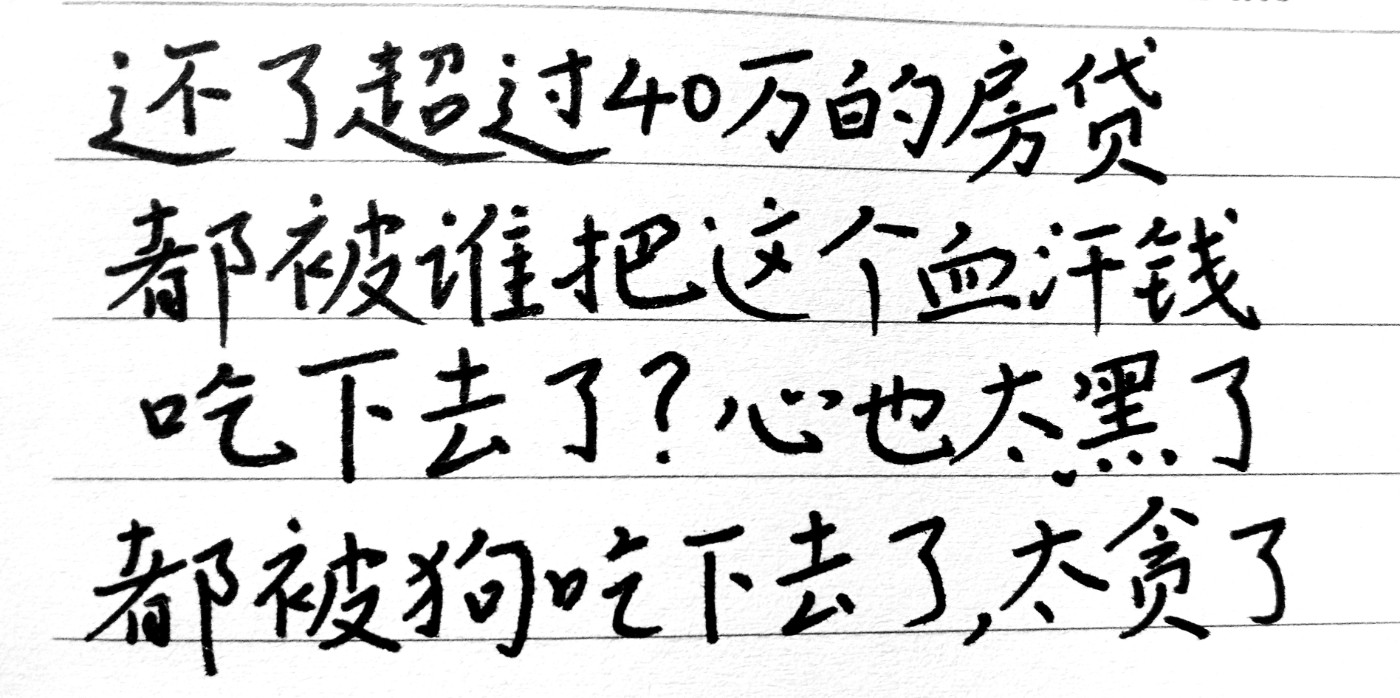 还了超过40万的房贷
都被谁把这个血汗钱
吃下去了?心也太黑了
都被狗吃下去了,太贪了